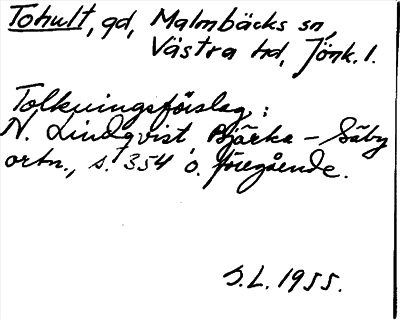 Tohult, gd, Malmbäcks sn,
Västra hd, Jönk. l.
Tolkningsförslag:
N. Lindqvist, Bjärka-Säby
ortn., s. 354 o. föregående.
S.L. 1955.